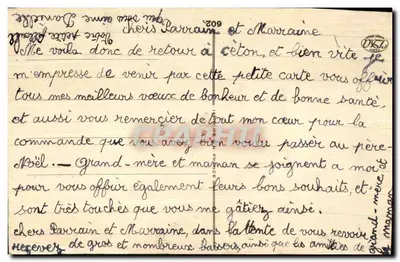 chers Parrain et Marraine
Me voilà donc de retour à Céton, et bien vite je
m'empresse de venir par cette petite carte vous offrir
tous mes meilleurs vœux de bonheur et de bonne santé,
et aussi vous remercier de tout mon cœur pour la
commande que vous avez bien voulu passer au père-
Noël. — Grand-mère et maman se joignent à moi
pour vous offrir également leurs bons souhaits, et
sont très touchés que vous me gâtiez ainsi.
chers Parrain et Marraine, dans l'attente de vous revoir
recevez de gros et nombreux baisers, ainsi que les amitiés de
grand-mère
et maman
votre petite filleule
qui vous aime Danielle
602